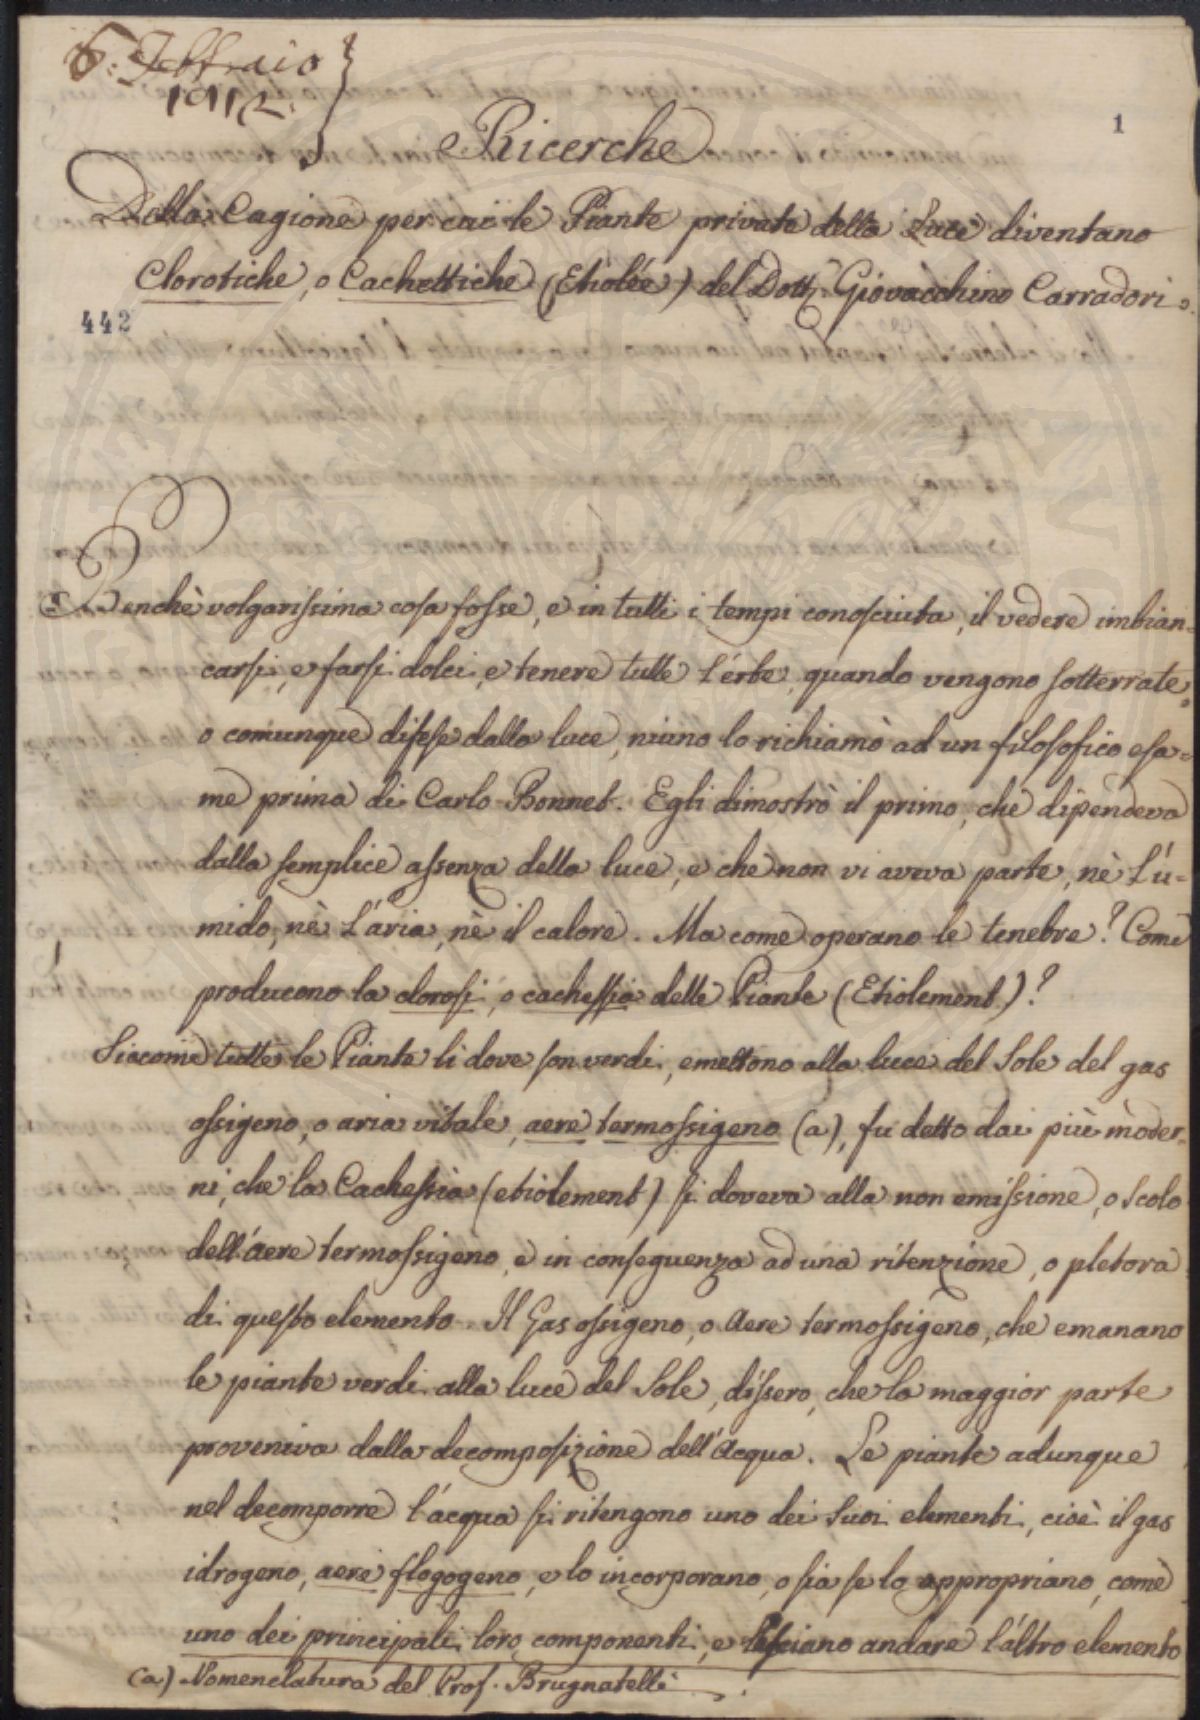 6. Febbraio
1912.
1
Ricerche
Della Cagione per cui le Piante private della Luce diventano
Clorotiche, o Cachettiche (Etiolée) del Dott. Giovacchino Carradori.
442
Benchè volgarissima cosa fosse, e in tutti i tempi conosciuta, il vedere imbian=
carsi, e farsi dolci, e tenere tutte l'érbe, quando vengono sotterrate,
o comunque difese dalla luce, niuno lo richiamò ad un filosofico esa=
me prima di Carlo Bonnet. Egli dimostrò il primo, che dipendeva
dalla semplice assenza della luce, e che non vi aveva parte, nè l'u=
mido, nè l'aria, nè il calore. Ma come operano le tenebre? Come
producono la clorosi, o cachessia delle Piante (Etiolement)?
Siacome tutte le Piante li dove son verdi, emettono alla luce del Sole del gas
ossigeno, o aria vitale, aere termossigeno (a), fu detto dai più moder=
ni, che la Cachessia (etiolement) si doveva alla non emissione, o scolo
dell'aere termossigeno, e in conseguenza ad una ritenzione, o pletora
di questo elemento. Il Gas ossigeno, o Aere termossigeno, che emanano
le piante verdi alla luce del Sole, dissero, che la maggior parte
proveniva dalla decomposizione dell'Acqua. Le piante adunque
nel decomporre l'acqua si ritengono uno dei suoi elementi, cioè il gas
idrogeno, aere flogogeno, e lo incorporano, o sia se lo appropriano, come
uno dei principali loro componenti, e lasciano andare l'altro elemento
(a) Nomenclatura del Prof. Brugnatelli.